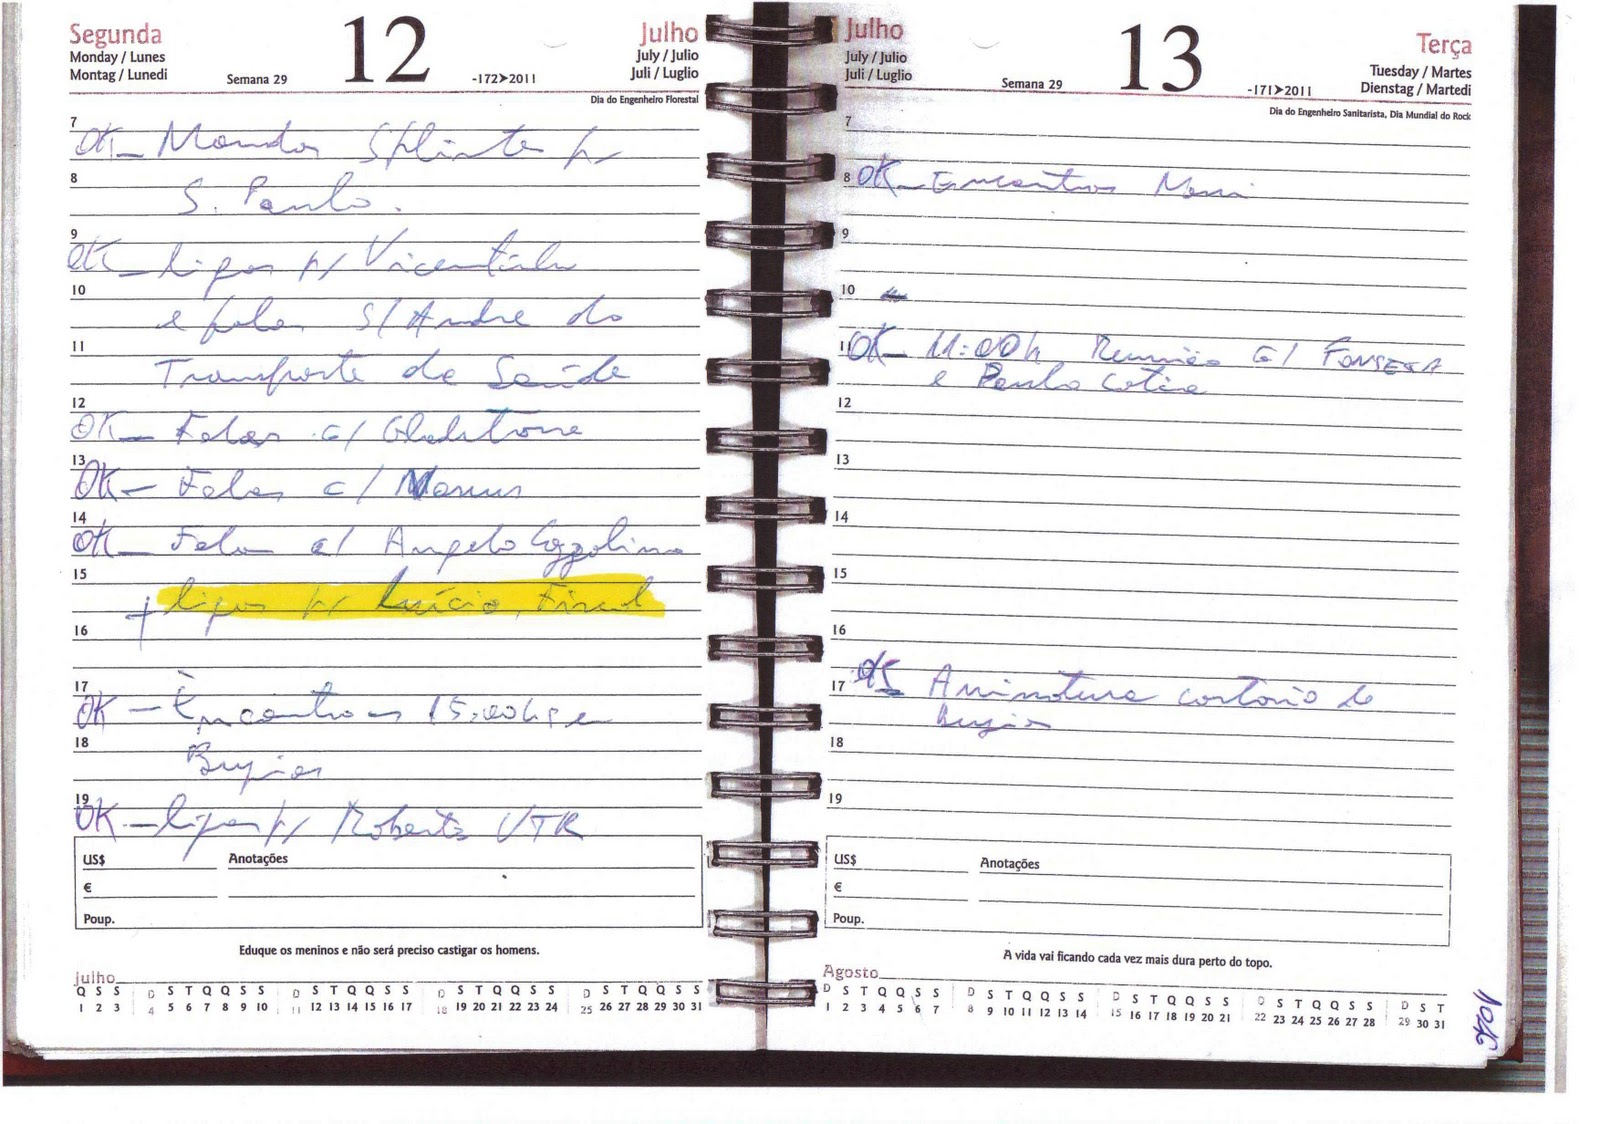 Segunda
Monday / Lunes
Montag / Lunedi
Semana 29
12
-172➤2011
Julho
July / Julio
Juli / Luglio
Dia do Engenheiro Florestal
7
OK - Mandar p/
8
S. Paulo.
9
OK - ligar p/ Vicentinho
10
e falar s/ Andre do
11
Transporte da Saúde
12
OK - Falar c/ Gladstone
13
OK - Falar c/
14
OK - Falar c/ Angelo Cozzolino
15
+ ligar p/ Lúcio, Fiscal
16
17
OK - Encontro as 15:00hs em
18
Buzios
19
OK - ligar p/ Roberto VTR
US$
Anotações
€
Poup.
Eduque os meninos e não será preciso castigar os homens.
Julho
Q S S D S T Q Q S S D S T Q Q S S D S T Q Q S S D S T Q Q S S
1 2 3 4 5 6 7 8 9 10 11 12 13 14 15 16 17 18 19 20 21 22 23 24 25 26 27 28 29 30 31
Julho
July / Julio
Juli / Luglio
Semana 29
13
-171➤2011
Terça
Tuesday / Martes
Dienstag / Martedi
Dia do Engenheiro Sanitarista, Dia Mundial do Rock
7
8
OK - Encontros
9
10
11
OK - 11:00h Reunião c/ FONSECA
e Paulo
12
13
14
15
16
17
OK Assinatura cartório de
Buzios
18
19
US$
Anotações
€
Poup.
A vida vai ficando cada vez mais dura perto do topo.
Agosto
D S T Q Q S S D S T Q Q S S D S T Q Q S S D S T Q Q S S D S T
1 2 3 4 5 6 7 8 9 10 11 12 13 14 15 16 17 18 19 20 21 22 23 24 25 26 27 28 29 30 31